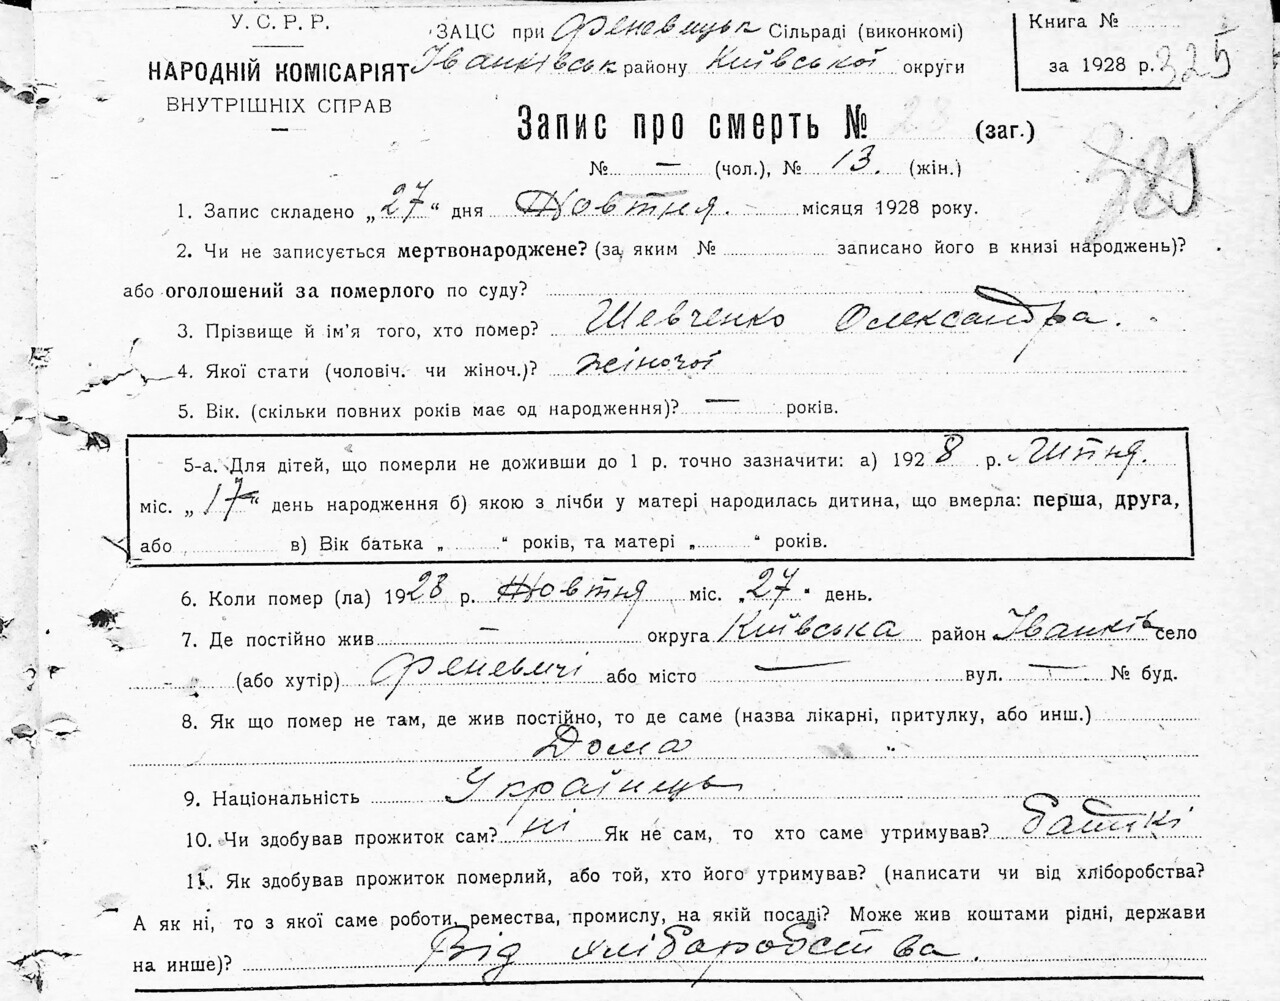 У.С.Р.Р.
НАРОДНІЙ КОМІСАРІЯТ
ВНУТРІШНІХ СПРАВ
ЗАЦС при Феневицьк Сільраді (виконкомі)
Іванківськ району Київської округи
Книга №
за 1928 р. 325
Запис про смерть № 23 (заг.)
№ — (чол.), № 13. (жін.)
1. Запис складено „27“ дня Жовтня. місяця 1928 року.
2. Чи не записується мертвонароджене? (за яким № записано його в книзі народжень)?
або оголошений за померлого по суду?
3. Прізвище й ім'я того, хто помер? Шевченко Олександра.
4. Якої стати (чоловіч. чи жіноч.)? жіночої
5. Вік. (скільки повних років має од народження)? — років.
5-а. Для дітей, що померли не доживши до 1 р. точно зазначити: а) 1928 р. Липня.
міс. „17“ день народження б) якою з лічби у матері народилась дитина, що вмерла: перша, друга,
або в) Вік батька „ “ років, та матері „ “ років.
6. Коли помер (ла) 1928 р. Жовтня міс. „27“ день.
7. Де постійно жив — округа Київська район Іванків село
(або хутір) Феневичі або місто — вул. — № буд.
8. Як що помер не там, де жив постійно, то де саме (назва лікарні, притулку, або инш.)
Дома
9. Національність Українець
10. Чи здобував прожиток сам? ні Як не сам, то хто саме утримував? батькі
11. Як здобував прожиток померлий, або той, хто його утримував? (написати чи від хліборобства?
А як ні, то з якої саме роботи, ремества, промислу, на якій посаді? Може жив коштами рідні, держави
на инше)? Від хліборобства.